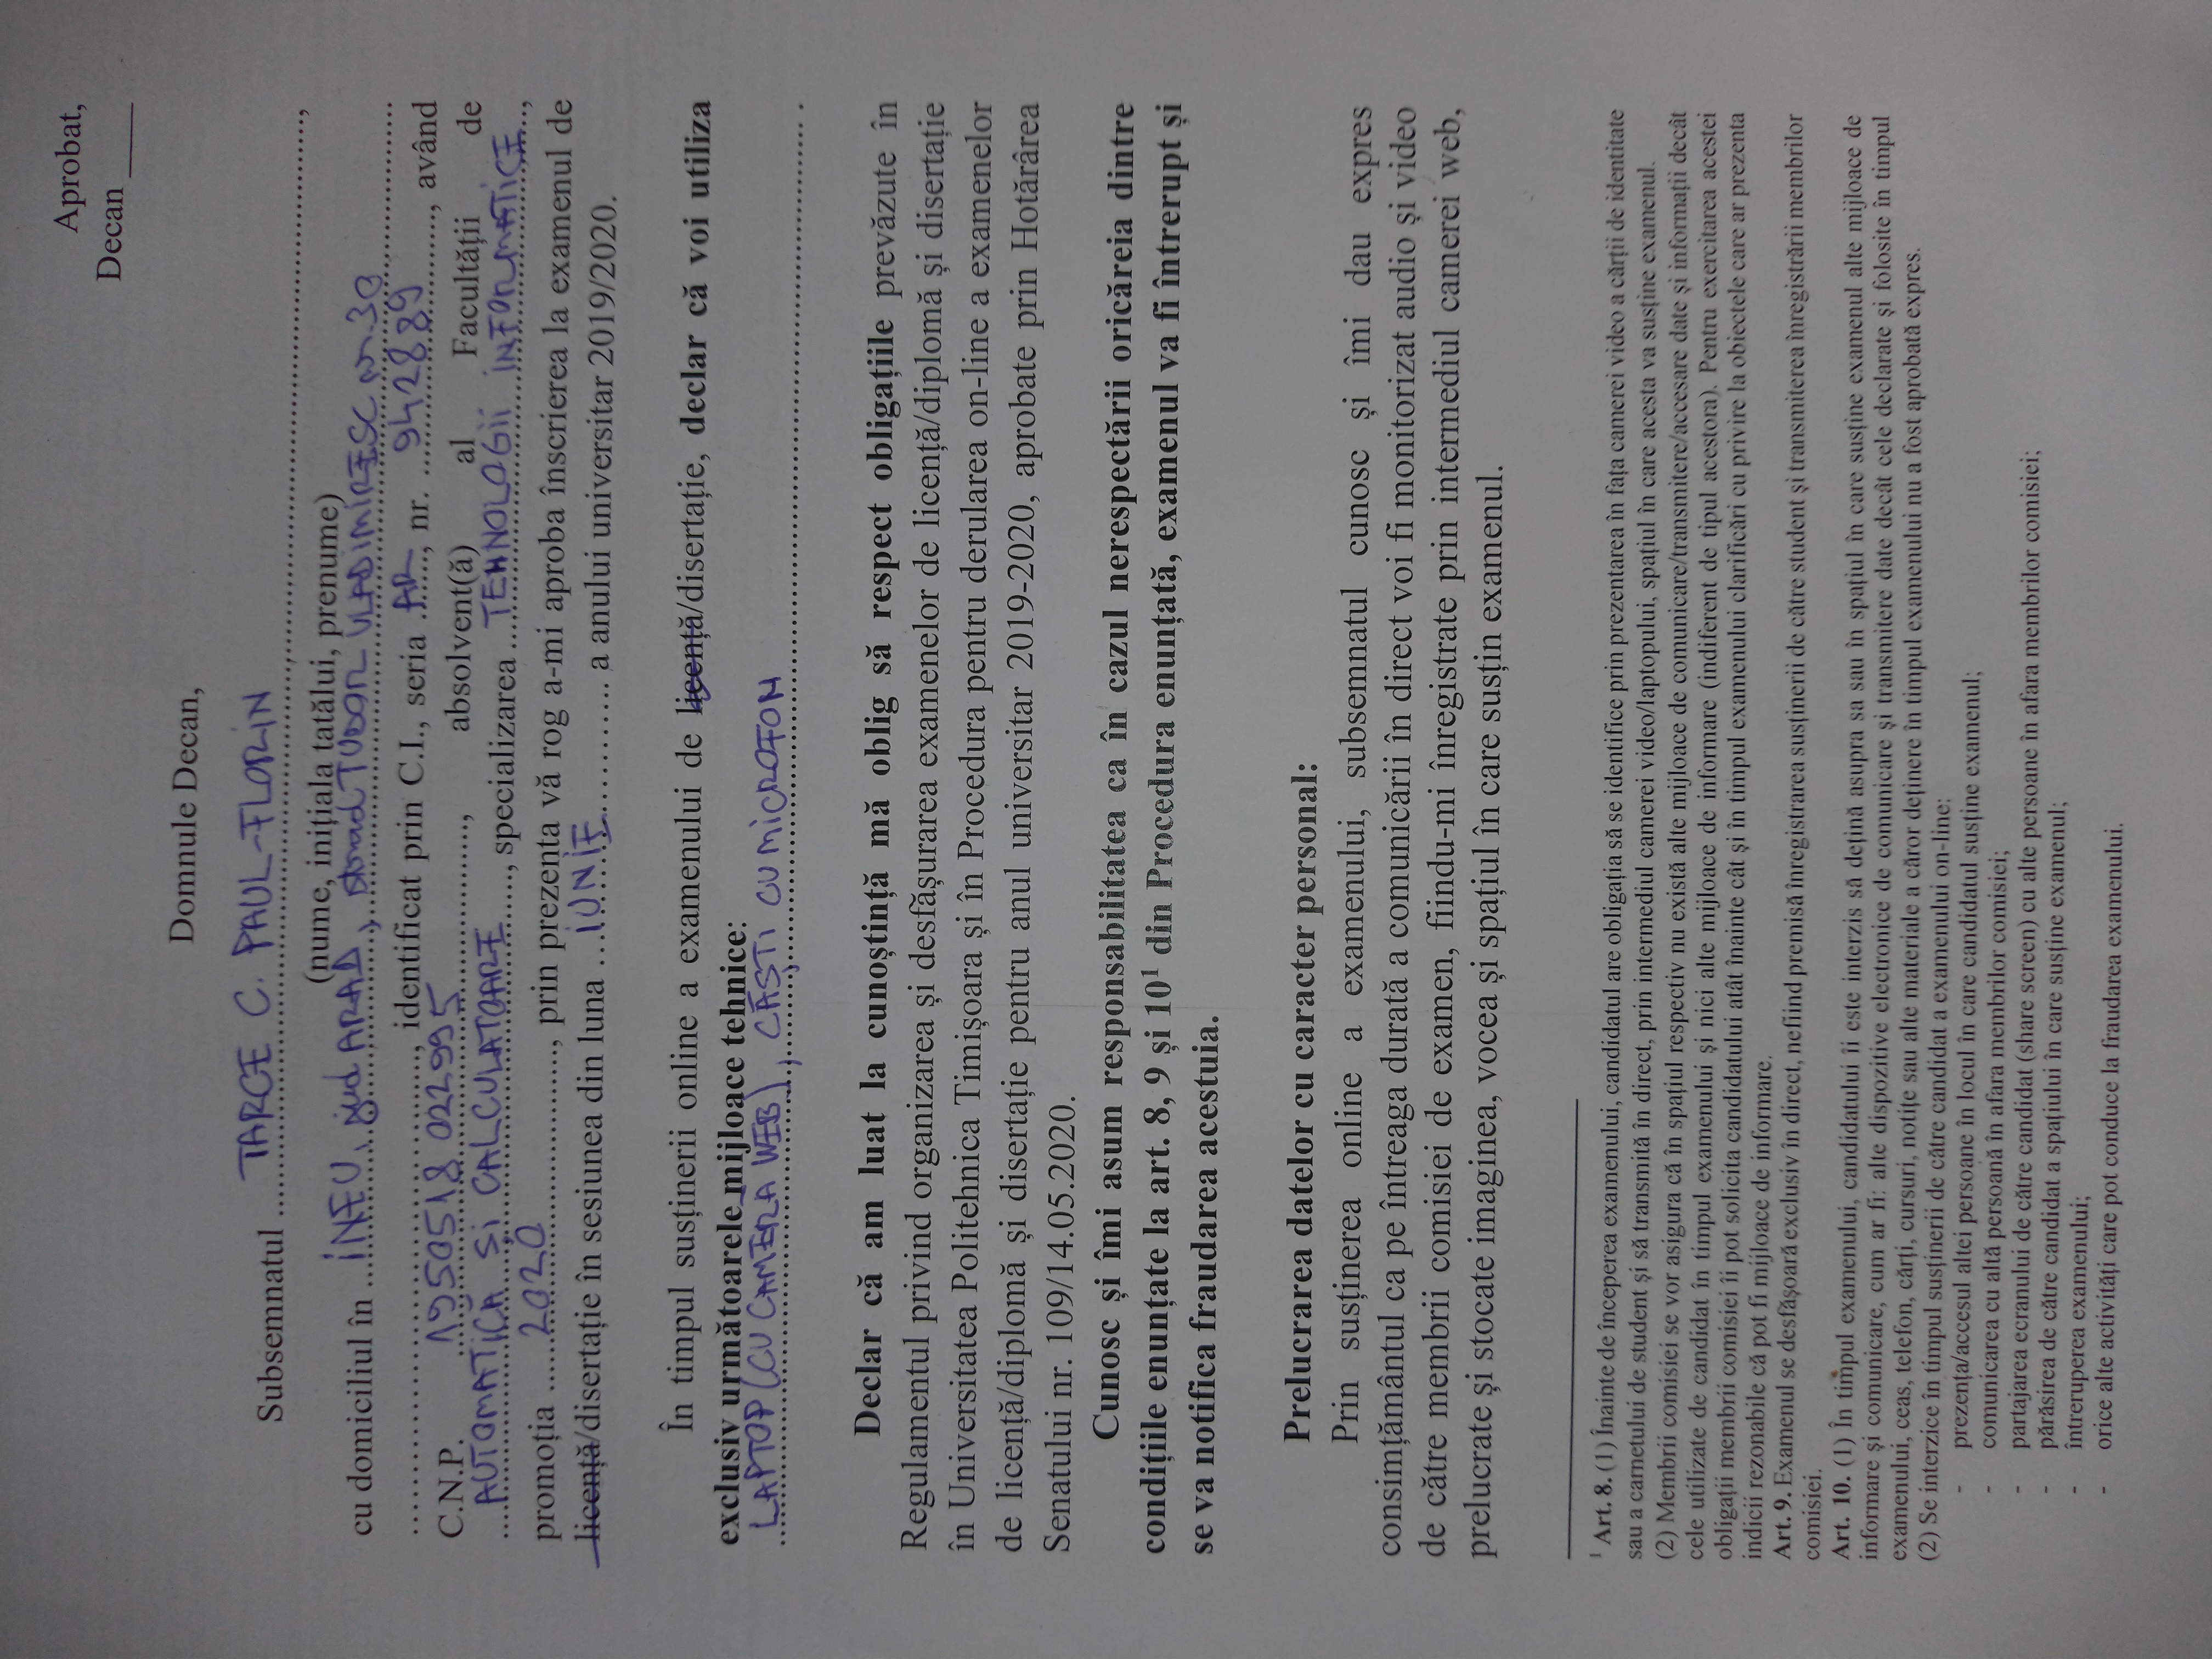 Aprobat,
Decan ____
Domnule Decan,
Subsemnatul ....TARCE C. PAUL-FLORIN....,
(nume, inițiala tatălui, prenume)
cu domiciliul în ....INEU, jud ARAD, strad TUDOR VLADIMIRESC nr.30....
...................., identificat prin C.I., seria ..AR...., nr. ....942889...., având
C.N.P. ....1950518022995...., absolvent(ă) al Facultății de
....AUTOMATICĂ și CALCULATOARE...., specializarea ....TEHNOLOGII INFORMATICE....,
promoția ....2020...., prin prezenta vă rog a-mi aproba înscrierea la examenul de
licență/disertație în sesiunea din luna ...IUNIE.......... a anului universitar 2019/2020.
În timpul susținerii online a examenului de licență/disertație, declar că voi utiliza
exclusiv următoarele mijloace tehnice:
LAPTOP (CU CAMERA WEB), CĂȘTI CU MICROFON.....
Declar că am luat la cunoștință mă oblig să respect obligațiile prevăzute în
Regulamentul privind organizarea și desfășurarea examenelor de licență/diplomă și disertație
în Universitatea Politehnica Timișoara și în Procedura pentru derularea on-line a examenelor
de licență/diplomă și disertație pentru anul universitar 2019-2020, aprobate prin Hotărârea
Senatului nr. 109/14.05.2020.
Cunosc și îmi asum responsabilitatea ca în cazul nerespectării oricăreia dintre
condițiile enunțate la art. 8, 9 și 10¹ din Procedura enunțată, examenul va fi întrerupt și
se va notifica fraudarea acestuia.
Prelucrarea datelor cu caracter personal:
Prin susținerea online a examenului, subsemnatul cunosc și îmi dau expres
consimțământul ca pe întreaga durată a comunicării în direct voi fi monitorizat audio și video
de către membrii comisiei de examen, fiindu-mi înregistrate prin intermediul camerei web,
prelucrate și stocate imaginea, vocea și spațiul în care susțin examenul.
¹ Art. 8. (1) Înainte de începerea examenului, candidatul are obligația să se identifice prin prezentarea în fața camerei video a cărții de identitate
sau a carnetului de student și să transmită în direct, prin intermediul camerei video/laptopului, spațiul în care acesta va susține examenul.
(2) Membrii comisiei se vor asigura că în spațiul respectiv nu există alte mijloace de comunicare/transmitere/accesare date și informații decât
cele utilizate de candidat în timpul examenului și nici alte mijloace de informare (indiferent de tipul acestora). Pentru exercitarea acestei
obligații membrii comisiei îi pot solicita candidatului atât înainte cât și în timpul examenului clarificări cu privire la obiectele care ar prezenta
indicii rezonabile că pot fi mijloace de informare.
Art. 9. Examenul se desfășoară exclusiv în direct, nefiind premisă înregistrarea susținerii de către student și transmiterea înregistrării membrilor
comisiei.
Art. 10. (1) În timpul examenului, candidatului îi este interzis să dețină asupra sa sau în spațiul în care susține examenul alte mijloace de
informare și comunicare, cum ar fi: alte dispozitive electronice de comunicare și transmitere date decât cele declarate și folosite în timpul
examenului, ceas, telefon, cărți, cursuri, notițe sau alte materiale a căror deținere în timpul examenului nu a fost aprobată expres.
(2) Se interzice în timpul susținerii de către candidat a examenului on-line:
- prezența/accesul altei persoane în locul în care candidatul susține examenul;
- comunicarea cu altă persoană în afara membrilor comisiei;
- partajarea ecranului de către candidat (share screen) cu alte persoane în afara membrilor comisiei;
- părăsirea de către candidat a spațiului în care susține examenul;
- întreruperea examenului;
- orice alte activități care pot conduce la fraudarea examenului.